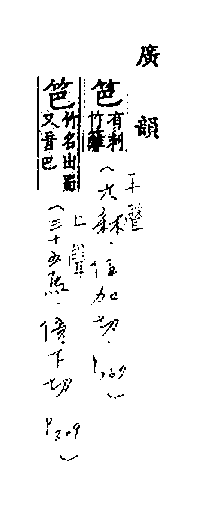 廣韻
笆 有刺竹籬
平聲（六麻·伯加切，
笆 竹名出蜀又音巴
上聲（三十五馬·傍下切 P309）